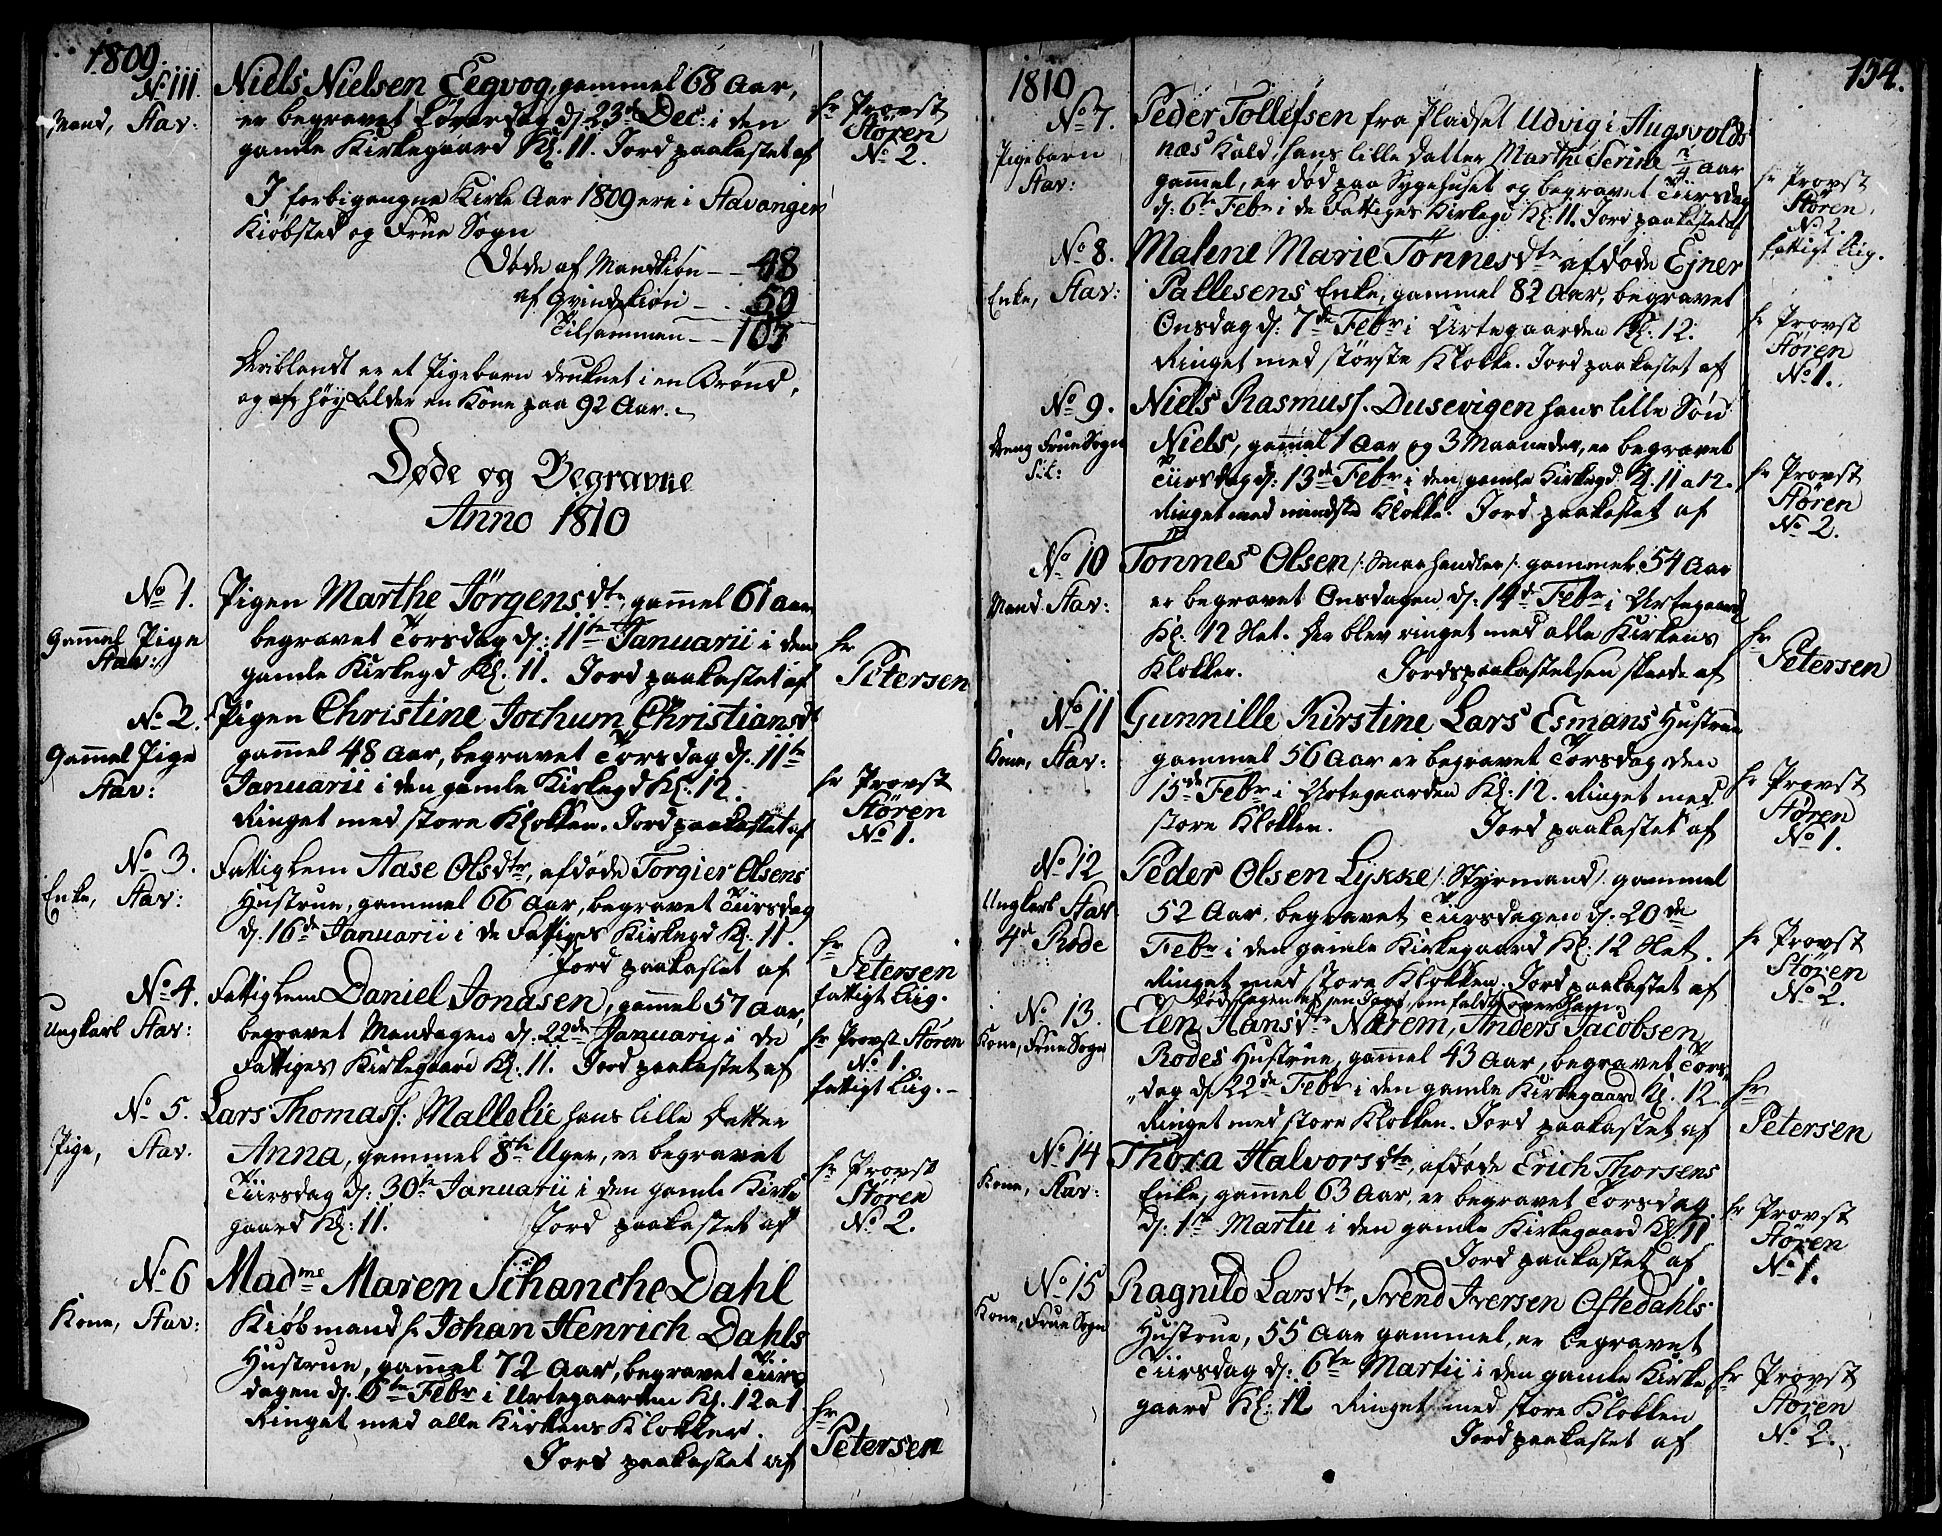 1809.
No 111.
Mand, Stav:
Niels Nielsen Eegvog, gammel 68 Aar,
er begravet Løverdag d. 23de Dec: i den
gamle Kirkegaard Kl. 11. Jord paakastet af
Hr Provst
Støren
No 2.
I forbigangne Kirke Aar 1809 ere i Stavanger
Kiøbsted og Frue Sogn
Døde af Mandkiøn -- 48
af Qvindekiøn --
Tilsammen --
Deriblandt er et Pigebarn druknet i en Brønd,
og af høy Alder en Kone paa 92 Aar.
Døde og Begravne
Anno 1810
No 1.
Gam̄el Pige
Stav:
Pigen Marthe Jörgensdtr, gam̄el 61 Aar
begravet Torsdag d: 11te Januarii i den
gamle Kirkegd Kl. 11. Jord paakastet af
Hr
Petersen
No 2.
Gam̄el Pige
Stav:
Pigen Christine Jochum Christiansdr
gam̄el 48 Aar, begravet Torsdag d. 11te
Januarii i den gamle Kirkegd Kl: 12.
Ringet med store Klokken. Jord paakastet af
Hr Provst
Støren
No 1.
No 3.
Enke, Stav:
Fattiglem Aase Olsdtr, afdøde Torgier Olsens
Hustrue, gammel 66 Aar, begravet Tiirsdag
d. 16de Januarii i de Fattiges Kirkegd Kl. 11.
Jord paakastet af
Hr
Petersen
fattigt Liig.
No 4.
Ungkarl Stav:
Fattiglem Daniel Jonasen, gam̄el 57 Aar,
begravet Mandagen d. 22de Januarij i de
Fattiges Kirkegaard Kl. 11. Jord paakastet af
Hr Provst Støren
No 1.
fattigt Liig.
No 5.
Pige, Stav.
Lars Thomass: Malleliè hans lille Datter
Anna, gammel 8te Uger, er begravet
Tiirsdag d: 30te Januarii i den gamle Kirke
gaard Kl: 11. Jord paakastet af
Hr Provst
Støren
No 2.
No 6
Kone, Stav:
Madme Maren Schanche Dahl
Kiøbmand hr Johan Henrich Dahls
Hustrue, gam̄el 72 Aar, begravet Tiirs
dagen d. 6te Febr i Urtegaarden Kl. 12 a 1
Ringet med alle Kirkens Klokker.
Jord paakastet af
Hr
Petersen
1810
154.
No 7.
Pigebarn
Stav:
Peder Tollefsen fra Pladset Udvig i Augsvolds
næs Kald, hans lille Datter Marthe Serine Aar
gam̄el, er død paa Sygehuset og begravet Tiirsdag
d: 6te Febr i de Fattiges Kirkegd Kl: 11. Jord paakastet af
Hr Provst
Støren.
No 2.
fattigt Liig.
No 8.
Enke, Stav:
Malene Marie Tönnesdtr afdøde Ejner
Pallesens Enke, gammel 82 Aar, begravet
Onsdag d: 7de Febr i Urtegaarden Kl: 12.
Ringet med største Klokke. Jord paakastet af
Hr Provst
Støren
No 1.
No 9.
Dreng Frue Sogn
Niels Rasmuss. Dusevigen hans lille Søn
Niels, gam̄el 1 Aar og 3 Maaneder, er begravet
Tiirsdag d: 13de Febr i den gamle Kirkegd. Kl. 11 a 12.
Ringet med mindste Klokke. Jord paakastet af
Hr Provst
Støren
No 2.
No 10
Mand Stav:
Tönnes Olsen /: Smaahandler /: gammel 54 Aar
er begravet Onsdagen d: 14de Febr i Urtegaard
Kl: 12 Slet. Der blev ringet med alle Kirkens
Klokker. Jordspaakastelsen skeede af
Hr
Petersen
No 11
Kone, Stav:
Gunnille Kirstine Lars Esmans Hustrue
gammel 56 Aar er begravet Torsdag den
15de Febr i Urtegaarden Kl: 12. Ringet med
store Klokken. Jord paakastet af
Hr Provst
Støren
No 1.
No 12
Ungkarl Stav
4de Rode
Peder Olsen Lykke /: Styrmand /. gammel
52 Aar, begravet Tiirsdagen d. 20de
Febr i den gamle Kirkegaard Kl: 12 Slet.
Ringet med store Klokken. Jord paakastet af
Hr Provst
Støren
No 2.
No 13.
Kone, Frue Sogn
Elen Hansdtr Nærem, Anders Jacobsen
Rodes Hustrue, gam̄el 43 Aar, begravet Tors-
dag d. 22de Febr i den gamle Kirkegaard Kl. 12.
Ringet med store Klokken. Jord paakastet af
Hr
Petersen
No 14
Kone, Stav:
Thora Halvorsdtr, afdøde Erich Thorsens
Enke, gam̄el 63 Aar, er begravet Torsdag
d: 1te Martii i den gamle Kirkegaard Kl. 11
Jord paakastet af
Hr Provst
Støren
No 1.
No 15
Kone, Frue Sogn
Ragnild Larsdtr, Svend Iversen Oftedahls
Hustrue, 55 Aar gammel, er begravet
Tiirsdag d: 6te Martii i den gamle Kirke
gaard Kl: 12 Ringet med store Klokken
Jord paakastet af
Hr Provst
Støren
No 2.